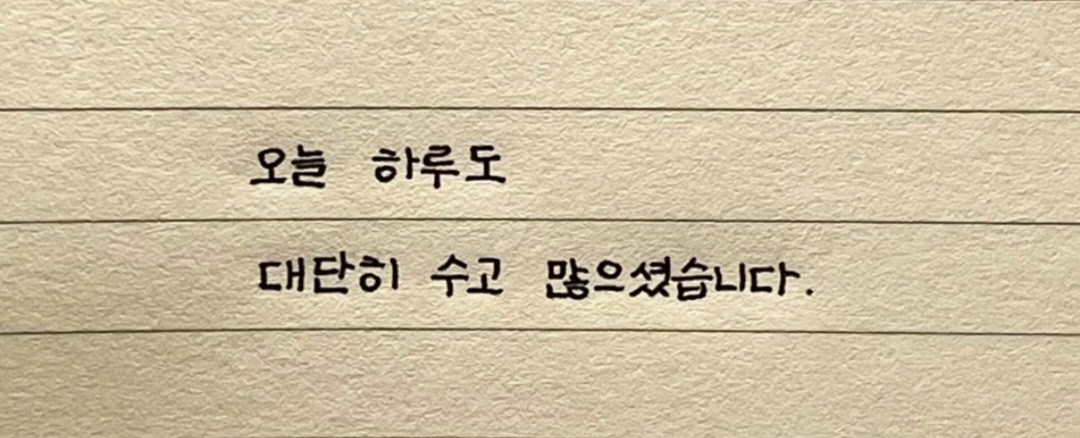 오늘 하루도
대단히 수고 많으셨습니다.